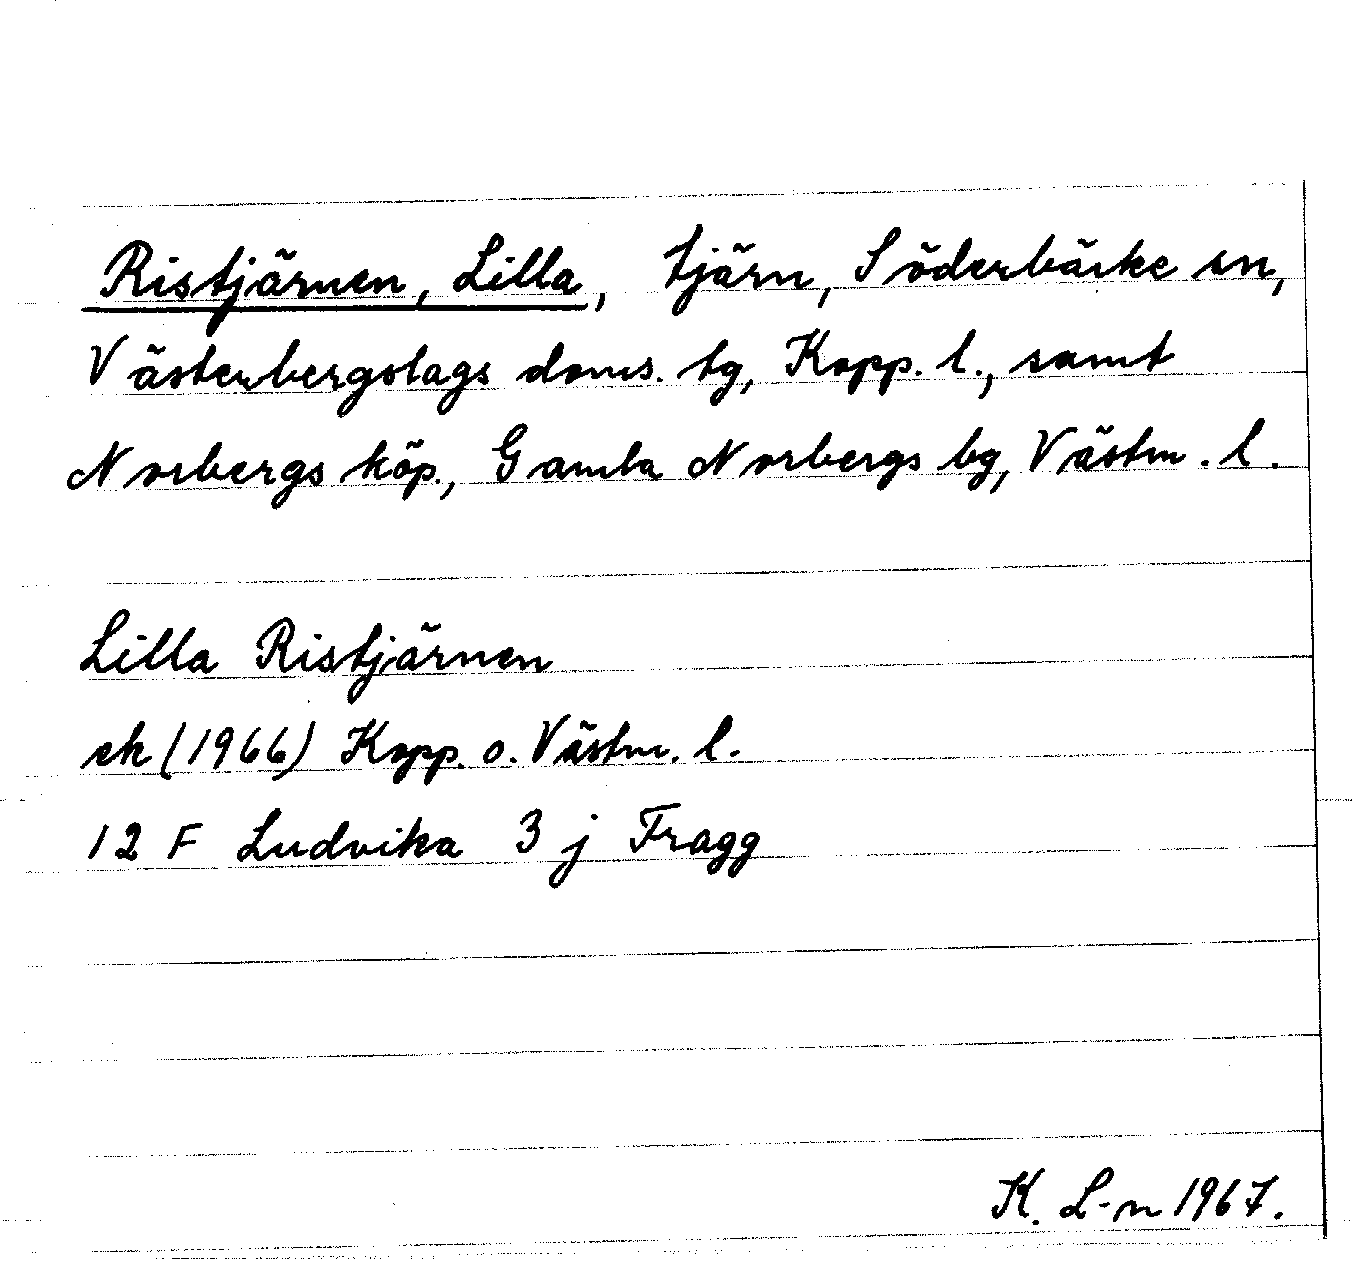 Ristjärnen, Lilla, tjärn, Söderbärke sn,
Västerbergslags doms. tg, Kopp. l., samt
Norbergs köp., Gamla Norbergs bg, Västm. l.
Lilla Ristjärnen
ek (1966) Kopp. o. Västm. l.
12 F Ludvika 3 j Fragg
K. L-n 1967.